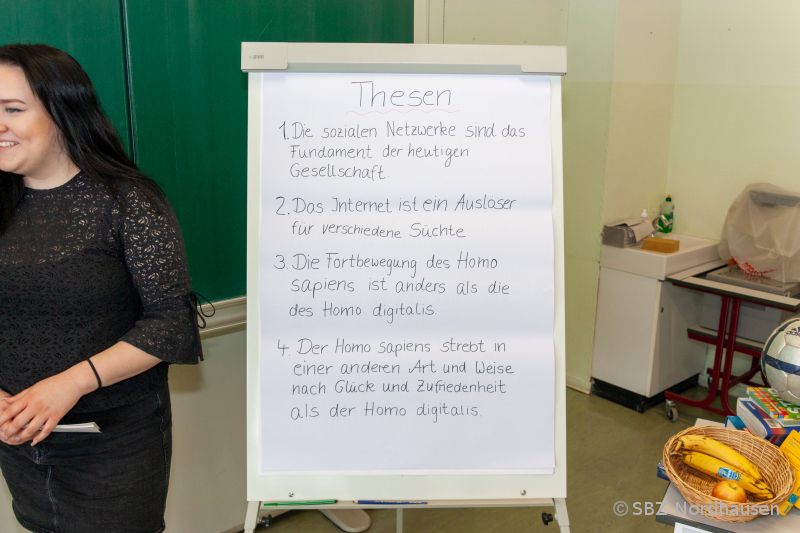 Thesen
1. Die sozialen Netzwerke sind das
Fundament der heutigen
Gesellschaft.
2. Das Internet ist ein Auslöser
für verschiedene Süchte
3. Die Fortbewegung des Homo
sapiens ist anders als die
des Homo digitalis.
4. Der Homo sapiens strebt in
einer anderen Art und Weise
nach Glück und Zufriedenheit
als der Homo digitalis.
© SBZ Nordhausen